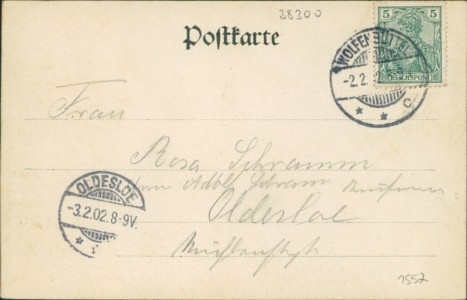 38300
Postkarte
5 5
REICHSPOST
WOLFENBÜTTEL
-2.2.
c
Frau
Rosa Schramm
Adolf Schramm
Oldesloe
OLDESLOE
-3.2.02.8-9V.
1557